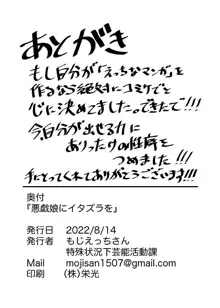 あとがき
もし自分が「えっちなマンガ」を
作るなら絶対にコミケでと
心に決めてました。できたで!!!
今、自分が出せる力に
ありったけの性癖を
つめました!!!
手にとってくれてありがとうございます!!!
奥付
『悪戯娘にイタズラを』
発行日 2022/8/14
発行者 もじえっちさん
特殊状況下芸能活動課
Mail mojisan1507@gmail.com
印刷 （株）栄光